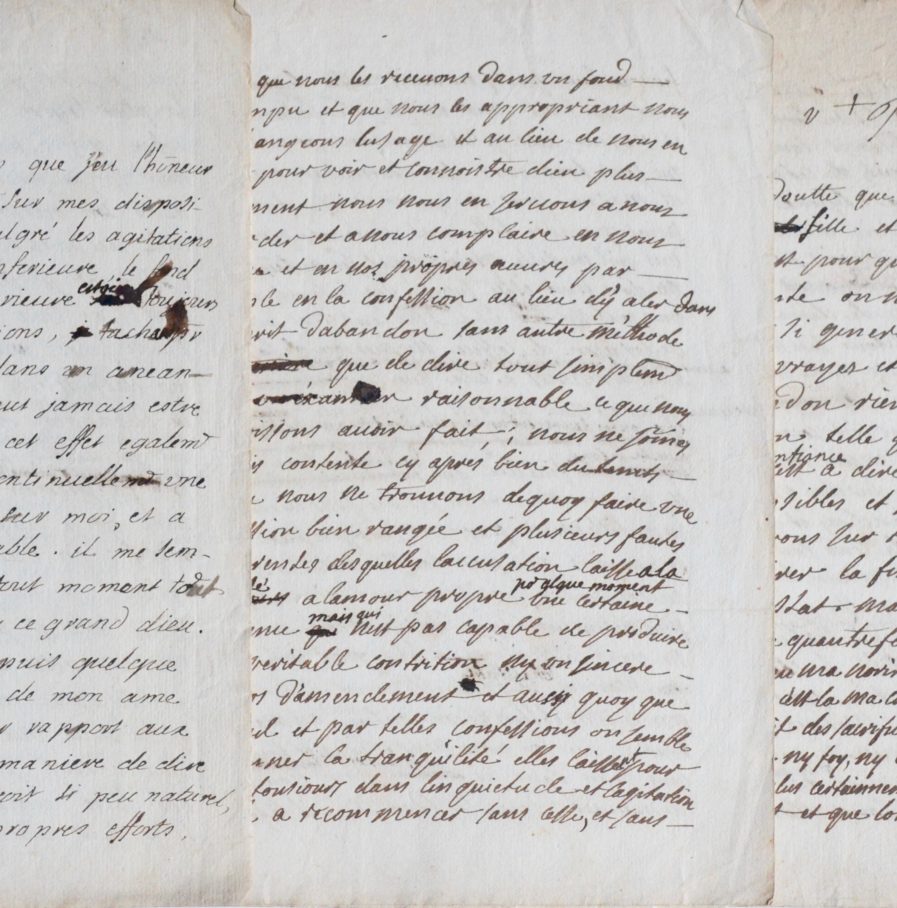 que j'eu l'hineur
sur mes disposi-
algré les agitations
nferieure, le fond
rieure estoit toujours
ions, tacher
dans un anean-
eut jamais estre
cet effet egalemt
ontinuellemt une
sur moi, et a
able. il me sem-
tout moment tout
ce grand dieu.
puis quelque
de mon ame
rapport aux
maniere de dire
oit si peu naturel,
propres efforts.
que nous les receuons dans un fond
mpu et que nous les appropriant nous
angeons lusage et au lieu de nous en
pour voir et connoistre dieu plus
ment nous nous en seruons a nous
der et a nous complaire en nous
et en nos propres œuures par
ple en la confession au lieu d'y aler dans
rit dabandon sans autre méthode
que de dire tout simplemt
examiner raisonnable ce que nous
issons auoir fait; nous ne somes
s contente cy aprés bien du tems
nous ne trouuons dequoy faire une
sion bien rangée et plusieurs fautes
rentes desquelles laccusation laisse a la
a lamour propre pr quelque moment une certaine
enue mais qui n'est pas capable de produire
veritable contrition ny un sincere
os d'amendement et aussy quoy que
ul et par telles confessions on semble
nner la tranquilité elles laissent pour
tousiours dans linquietude et lagitation
, a recommencer sans cesse, et sans
v +
doutte que
fille et
t pour qu
te on n
si gener
vrayes et
don rien
n telle q
nfiance
est a dire
sibles et
ous sur
rer la fu
stat. ma
quantrefo
ma novis
c'est la ma co
t des sacrifi
ny foy, ny
lus certainnem
t et que lo